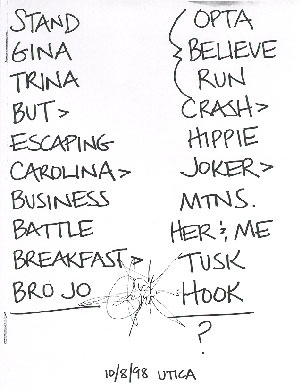 STAND
GINA
TRINA
BUT >
ESCAPING
CAROLINA >
BUSINESS
BATTLE
BREAKFAST >
BRO JO
OPTA
BELIEVE
RUN
CRASH >
HIPPIE
JOKER >
MTNS.
HER & ME
TUSK
HOOK
?
10/8/98 UTICA